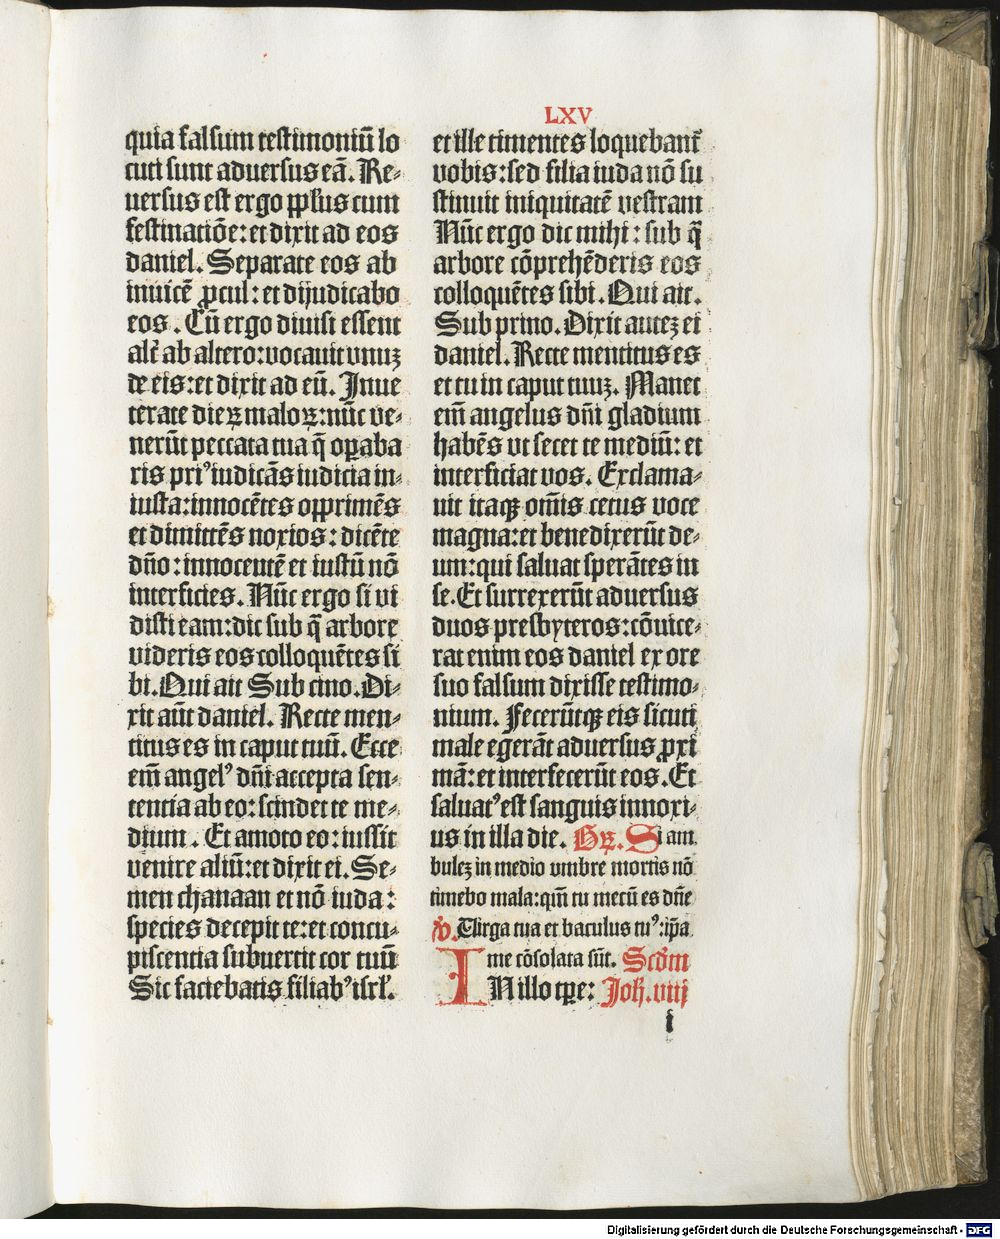 LXV
quia falsum testimoniū lo
cuti sunt aduersus eā. Re-
uersus est ergo ppl'us cum
festinatiōe: et dixit ad eos
daniel. Separate eos ab
inuicē ꝓcul: et dijudicabo
eos. Cū ergo diuisi essent
alt̄ ab altero: vocauit vnuꝫ
de eis: et dixit ad eū. Inue
terate dieꝝ maloꝝ: nūc ve-
nerūt peccata tua q̄ oꝑaba
ris pri⁹ iudicās iudicia in-
iusta: innocētes opprimēs
et dimittēs noxios: dicēte
dn̄o: innocentē et iustū nō
interficies. Nūc ergo si vi
disti eam: dic sub q̄ arbore
videris eos colloquētes si
bi. Qui ait Sub cino. Di-
xit aūt daniel. Recte men-
titus es in caput tuū. Ecce
em̄ angel⁹ dn̄i accepta sen-
tentia ab eo: scindet te me-
dium. Et amoto eo: iussit
venire aliū: et dixit ei. Se-
men chanaan et nō iuda:
species decepit te: et concu-
piscentia subuertit cor tuū
Sic faciebatis filiab⁹ isrl'.
et ille timentes loquebant᷑
vobis: sed filia iuda nō su
stinuit iniquitatē vestram
Nūc ergo dic mihi: sub q̄
arbore cōprehēderis eos
colloquētes sibi. Qui ait.
Sub prino. Dixit auteꝫ ei
daniel. Recte mentitus es
et tu in caput tuuꝫ. Manet
em̄ angelus dn̄i gladium
habēs vt secet te mediū: et
interficiat vos. Exclama-
uit itaqꝫ om̄is cetus voce
magna: et benedixerūt de-
um: qui saluat sperātes in
se. Et surrexerūt aduersus
duos presbyteros: cōuice-
rat enim eos daniel ex ore
suo falsum dixisse testimo-
nium. Feceruntqꝫ eis sicuti
male egerāt aduersus ꝓxi
mā: et interfecerūt eos. Et
saluat⁹ est sanguis innoxi-
us in illa die. Gꝝ. Si am
buleꝫ in medio vmbre mortis nō
timebo mala: qm̄ tu mecū es dn̄e
℣. Uirga tua et baculus tu⁹: ip̄a
me cōsolata sūt. Scd̄m
IN illo tꝑe: Joh. viij
i
Digitalisierung gefördert durch die Deutsche Forschungsgemeinschaft - DFG